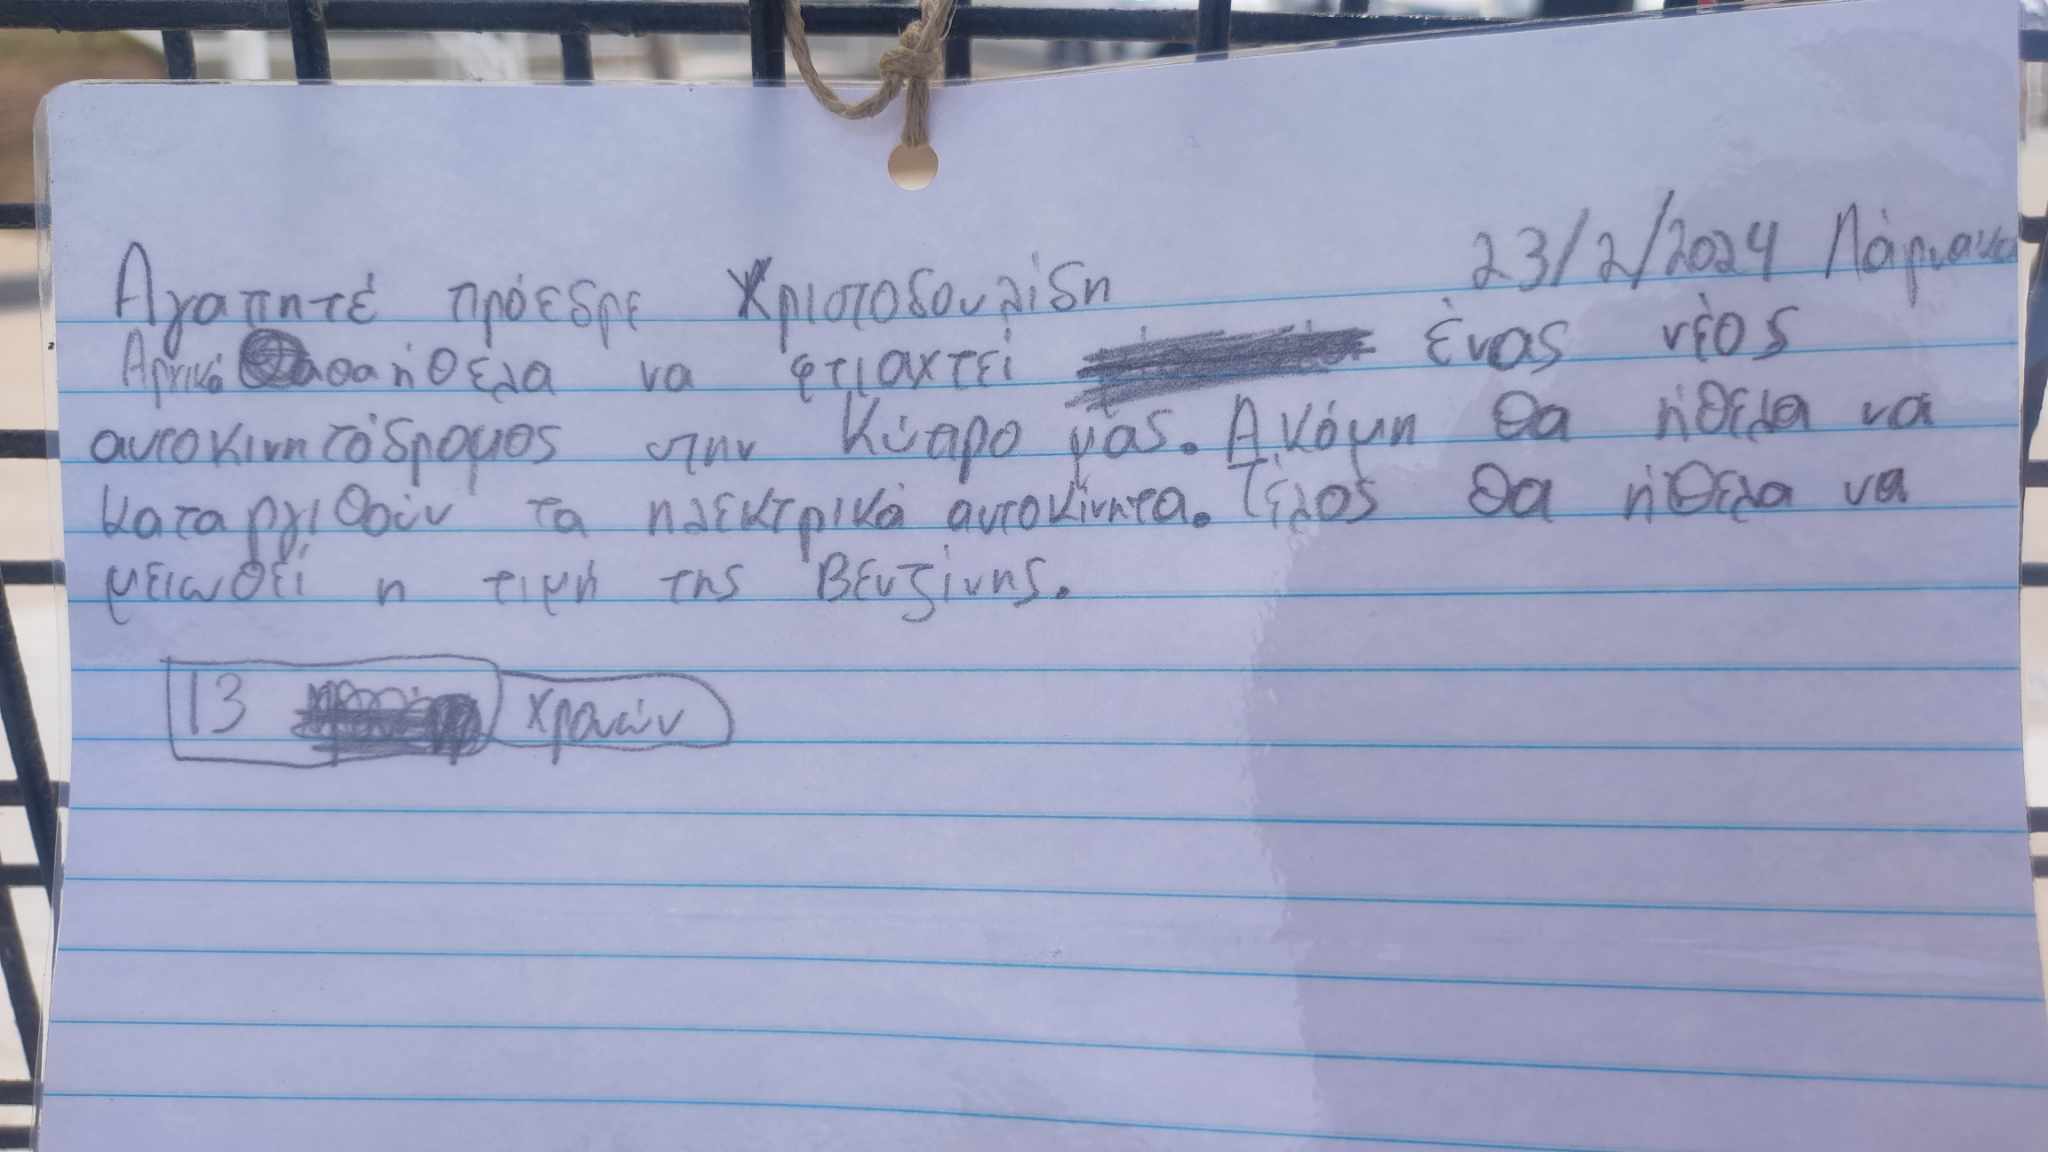 23/2/2024 Λάρνακα
Αγαπητέ πρόεδρε Χριστοδουλίδη
Αρχικά θα ήθελα να φτιαχτεί ένας νέος
αυτοκινητόδρομος στην Κύπρο μας. Ακόμη θα ήθελα να
καταργιθούν τα ηλεκτρικά αυτοκίνητα. Τέλος θα ήθελα να
μειωθεί η τιμή της Βενζίνης.
13 χρονών